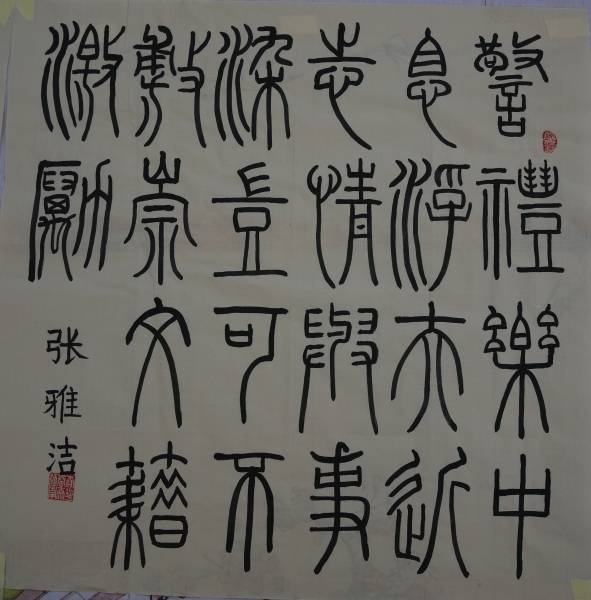 警禮樂中
息浮夫近
志情與事
染豈可不
敷崇文籍
激勵
张雅洁